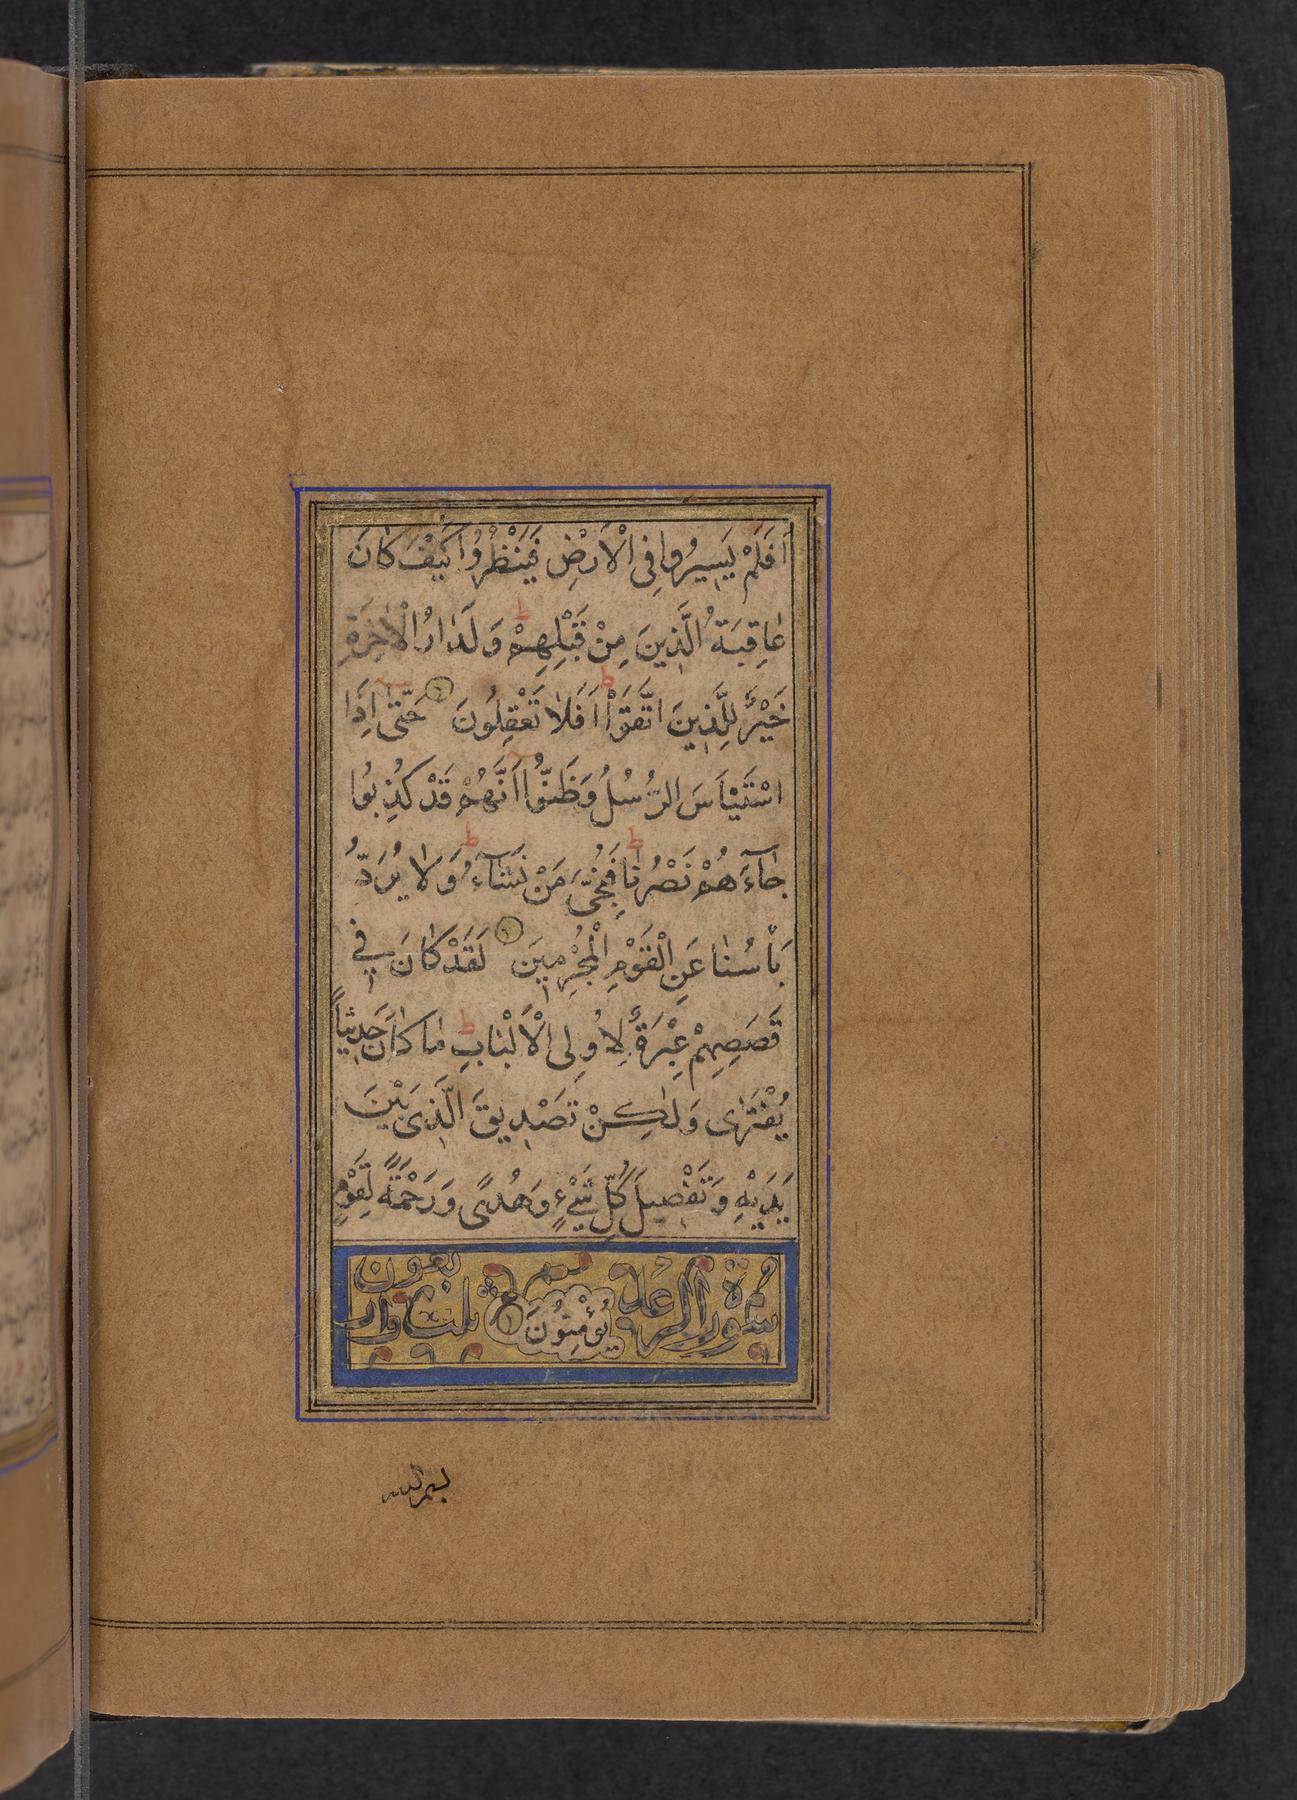 اَفَلَمْ يَسِيرُوا فِى الْاَرْضِ فَيَنْظُرُوا كَيْفَ كَانَ
عَاقِبَةُ الَّذِينَ مِنْ قَبْلِهِمْ وَلَدَارُ الْاٰخِرَةِ
خَيْرٌ لِلَّذِينَ اتَّقَوْا اَفَلَا تَعْقِلُونَ حَتّٰى اِذَا
اسْتَيْاَسَ الرُّسُلُ وَظَنُّوا اَنَّهُمْ قَدْ كُذِبُوا
جَاۤءَهُمْ نَصْرُنَا فَنُجِّىَ مَنْ نَشَاۤءُ وَلَا يُرَدُّ
بَاْسُنَا عَنِ الْقَوْمِ الْمُجْرِمِينَ لَقَدْ كَانَ فِي
قَصَصِهِمْ عِبْرَةٌ لِاُولِى الْاَلْبَابِ مَا كَانَ حَدِيثاً
يُفْتَرٰى وَلٰكِنْ تَصْدِيقَ الَّذِى بَيْنَ
يَدَيْهِ وَتَفْصِيلَ كُلِّ شَىْءٍ وَهُدًى وَرَحْمَةً لِقَوْمٍ
يُؤْمِنُونَ
سُورَة الرعد ثلث واربعون
بسم الله